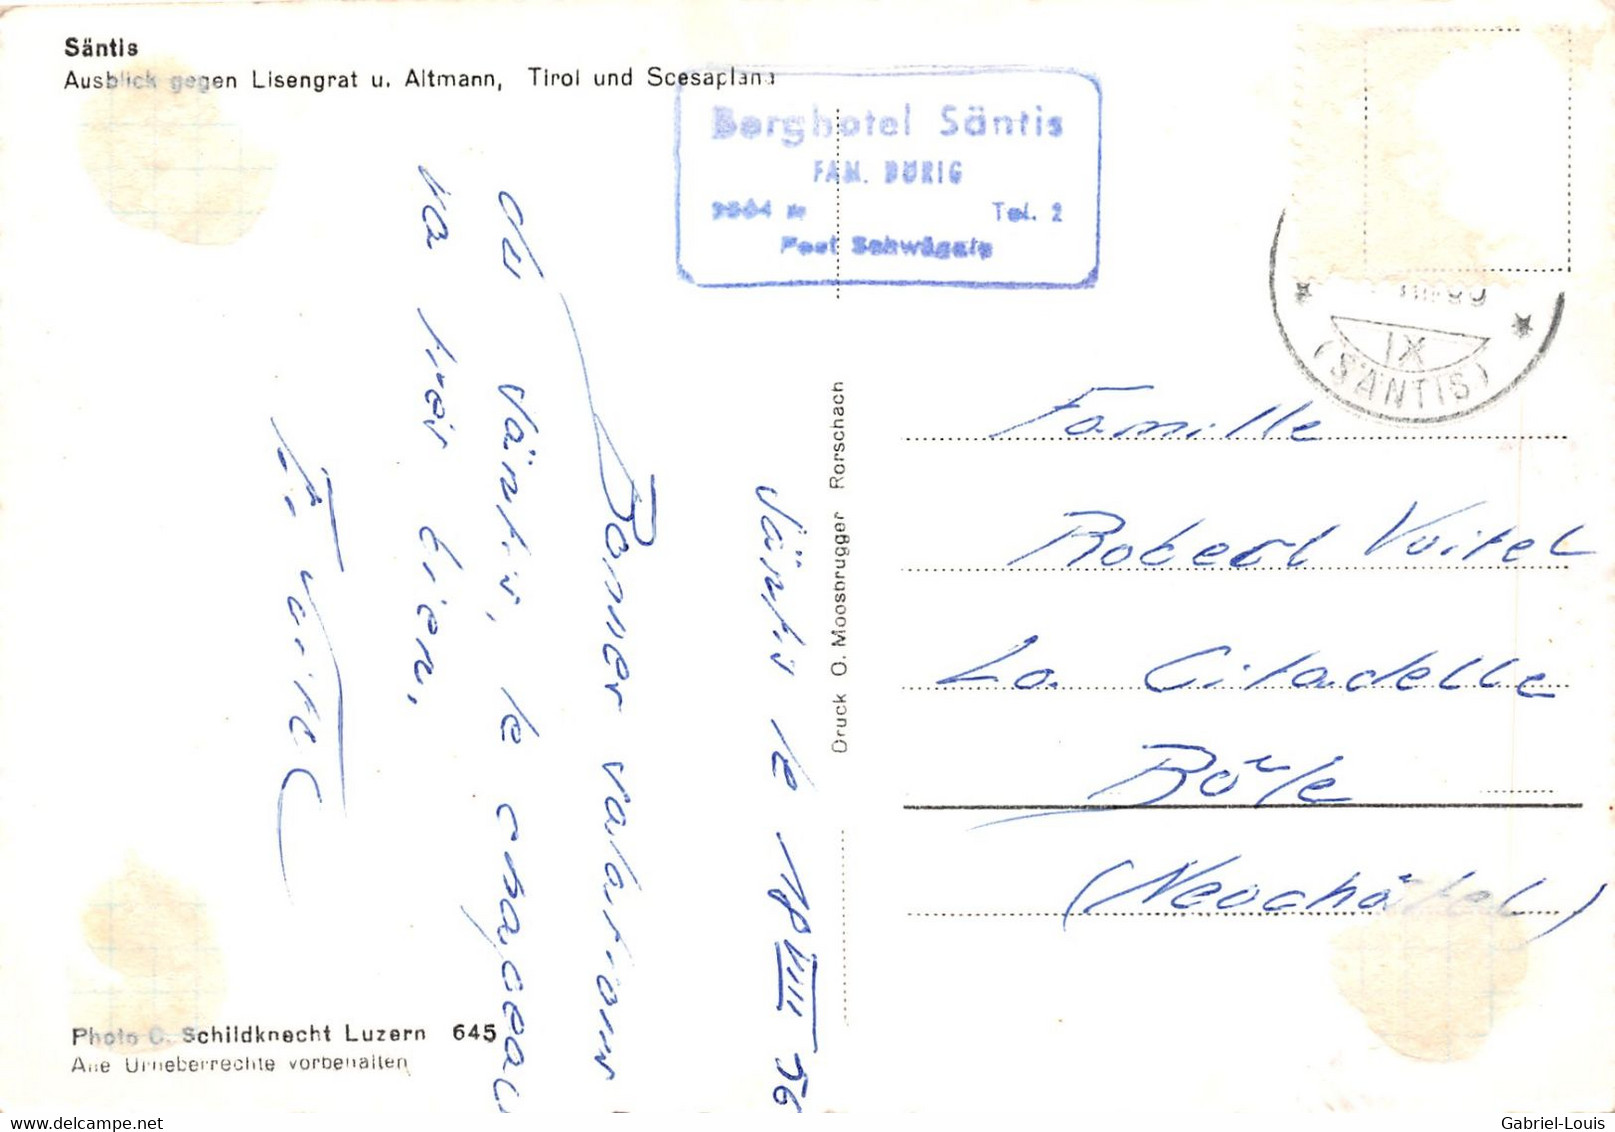 Säntis
Ausblick gegen Lisengrat u. Altmann, Tirol und Scesaplana
Berghotel Säntis
FAM. DÖRIG
2504 m Tel. 2
Post Schwägalp
IX
(SÄNTIS)
Säntis le 18 VIII 56
Bonnes salutations
du Säntis, le chapeau
va très bien.
Voitel
Druck O. Moosbrugger Rorschach
Famille
Robert Voitel
La Citadelle
Bôle
(Neuchâtel)
Photo C. Schildknecht Luzern 645
Alle Urheberrechte vorbehalten
delcampe.net
Gabriel-Louis